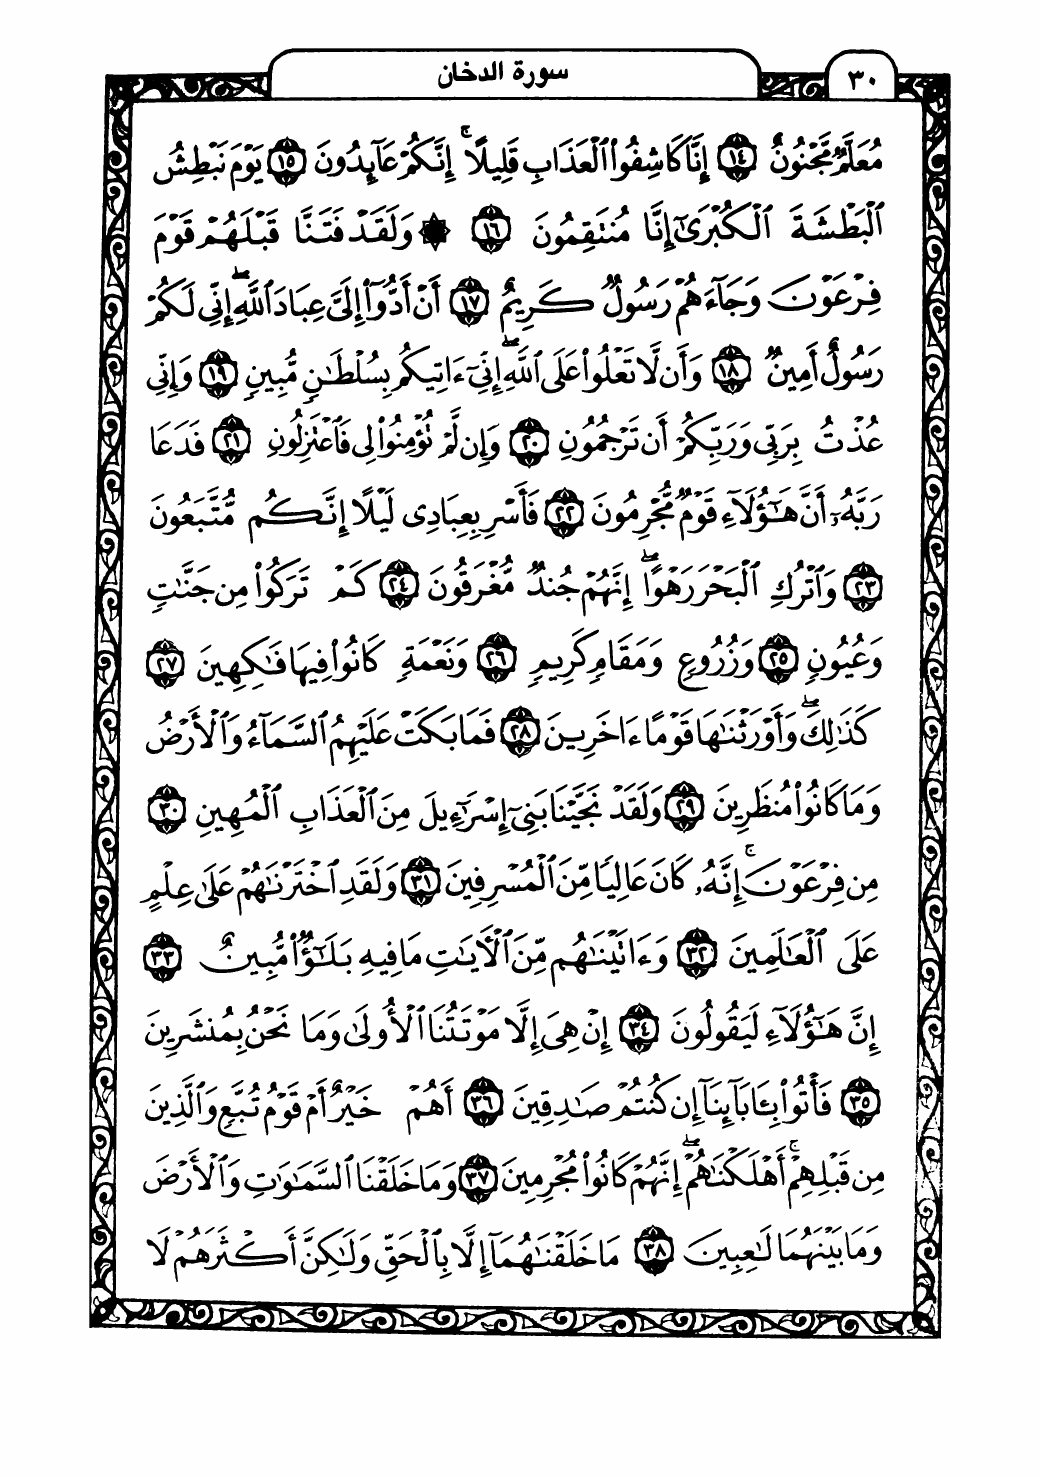 ٣٠
سورة الدخان
مُعَلَّمٌ مَّجْنُونٌ ﴿١٤﴾ إِنَّا كَاشِفُوا۟ ٱلْعَذَابِ قَلِيلًا ۚ إِنَّكُمْ عَآئِدُونَ ﴿١٥﴾ يَوْمَ نَبْطِشُ
ٱلْبَطْشَةَ ٱلْكُبْرَىٰٓ إِنَّا مُنتَقِمُونَ ﴿١٦﴾ ۞ وَلَقَدْ فَتَنَّا قَبْلَهُمْ قَوْمَ
فِرْعَوْنَ وَجَآءَهُمْ رَسُولٌ كَرِيمٌ ﴿١٧﴾ أَنْ أَدُّوٓا۟ إِلَىَّ عِبَادَ ٱللَّهِ ۖ إِنِّى لَكُمْ
رَسُولٌ أَمِينٌ ﴿١٨﴾ وَأَن لَّا تَعْلُوا۟ عَلَى ٱللَّهِ ۖ إِنِّىٓ ءَاتِيكُم بِسُلْطَـٰنٍ مُّبِينٍ ﴿١٩﴾ وَإِنِّى
عُذْتُ بِرَبِّى وَرَبِّكُمْ أَن تَرْجُمُونِ ﴿٢٠﴾ وَإِن لَّمْ تُؤْمِنُوا۟ لِى فَٱعْتَزِلُونِ ﴿٢١﴾ فَدَعَا
رَبَّهُۥٓ أَنَّ هَـٰٓؤُلَآءِ قَوْمٌ مُّجْرِمُونَ ﴿٢٢﴾ فَأَسْرِ بِعِبَادِى لَيْلًا إِنَّكُم مُّتَّبَعُونَ
﴿٢٣﴾ وَٱتْرُكِ ٱلْبَحْرَ رَهْوًا ۖ إِنَّهُمْ جُندٌ مُّغْرَقُونَ ﴿٢٤﴾ كَمْ تَرَكُوا۟ مِن جَنَّـٰتٍ
وَعُيُونٍ ﴿٢٥﴾ وَزُرُوعٍ وَمَقَامٍ كَرِيمٍ ﴿٢٦﴾ وَنَعْمَةٍ كَانُوا۟ فِيهَا فَـٰكِهِينَ ﴿٢٧﴾
كَذَٰلِكَ ۖ وَأَوْرَثْنَـٰهَا قَوْمًا ءَاخَرِينَ ﴿٢٨﴾ فَمَا بَكَتْ عَلَيْهِمُ ٱلسَّمَآءُ وَٱلْأَرْضُ
وَمَا كَانُوا۟ مُنظَرِينَ ﴿٢٩﴾ وَلَقَدْ نَجَّيْنَا بَنِىٓ إِسْرَٰٓءِيلَ مِنَ ٱلْعَذَابِ ٱلْمُهِينِ ﴿٣٠﴾
مِن فِرْعَوْنَ ۚ إِنَّهُۥ كَانَ عَالِيًا مِّنَ ٱلْمُسْرِفِينَ ﴿٣١﴾ وَلَقَدِ ٱخْتَرْنَـٰهُمْ عَلَىٰ عِلْمٍ
عَلَى ٱلْعَـٰلَمِينَ ﴿٣٢﴾ وَءَاتَيْنَـٰهُم مِّنَ ٱلْـَٔايَـٰتِ مَا فِيهِ بَلَـٰٓؤٌا۟ مُّبِينٌ ﴿٣٣﴾
إِنَّ هَـٰٓؤُلَآءِ لَيَقُولُونَ ﴿٣٤﴾ إِنْ هِىَ إِلَّا مَوْتَتُنَا ٱلْأُولَىٰ وَمَا نَحْنُ بِمُنشَرِينَ
﴿٣٥﴾ فَأْتُوا۟ بِـَٔابَآئِنَآ إِن كُنتُمْ صَـٰدِقِينَ ﴿٣٦﴾ أَهُمْ خَيْرٌ أَمْ قَوْمُ تُبَّعٍ وَٱلَّذِينَ
مِن قَبْلِهِمْ ۚ أَهْلَكْنَـٰهُمْ ۖ إِنَّهُمْ كَانُوا۟ مُجْرِمِينَ ﴿٣٧﴾ وَمَا خَلَقْنَا ٱلسَّمَـٰوَٰتِ وَٱلْأَرْضَ
وَمَا بَيْنَهُمَا لَـٰعِبِينَ ﴿٣٨﴾ مَا خَلَقْنَـٰهُمَآ إِلَّا بِٱلْحَقِّ وَلَـٰكِنَّ أَكْثَرَهُمْ لَا